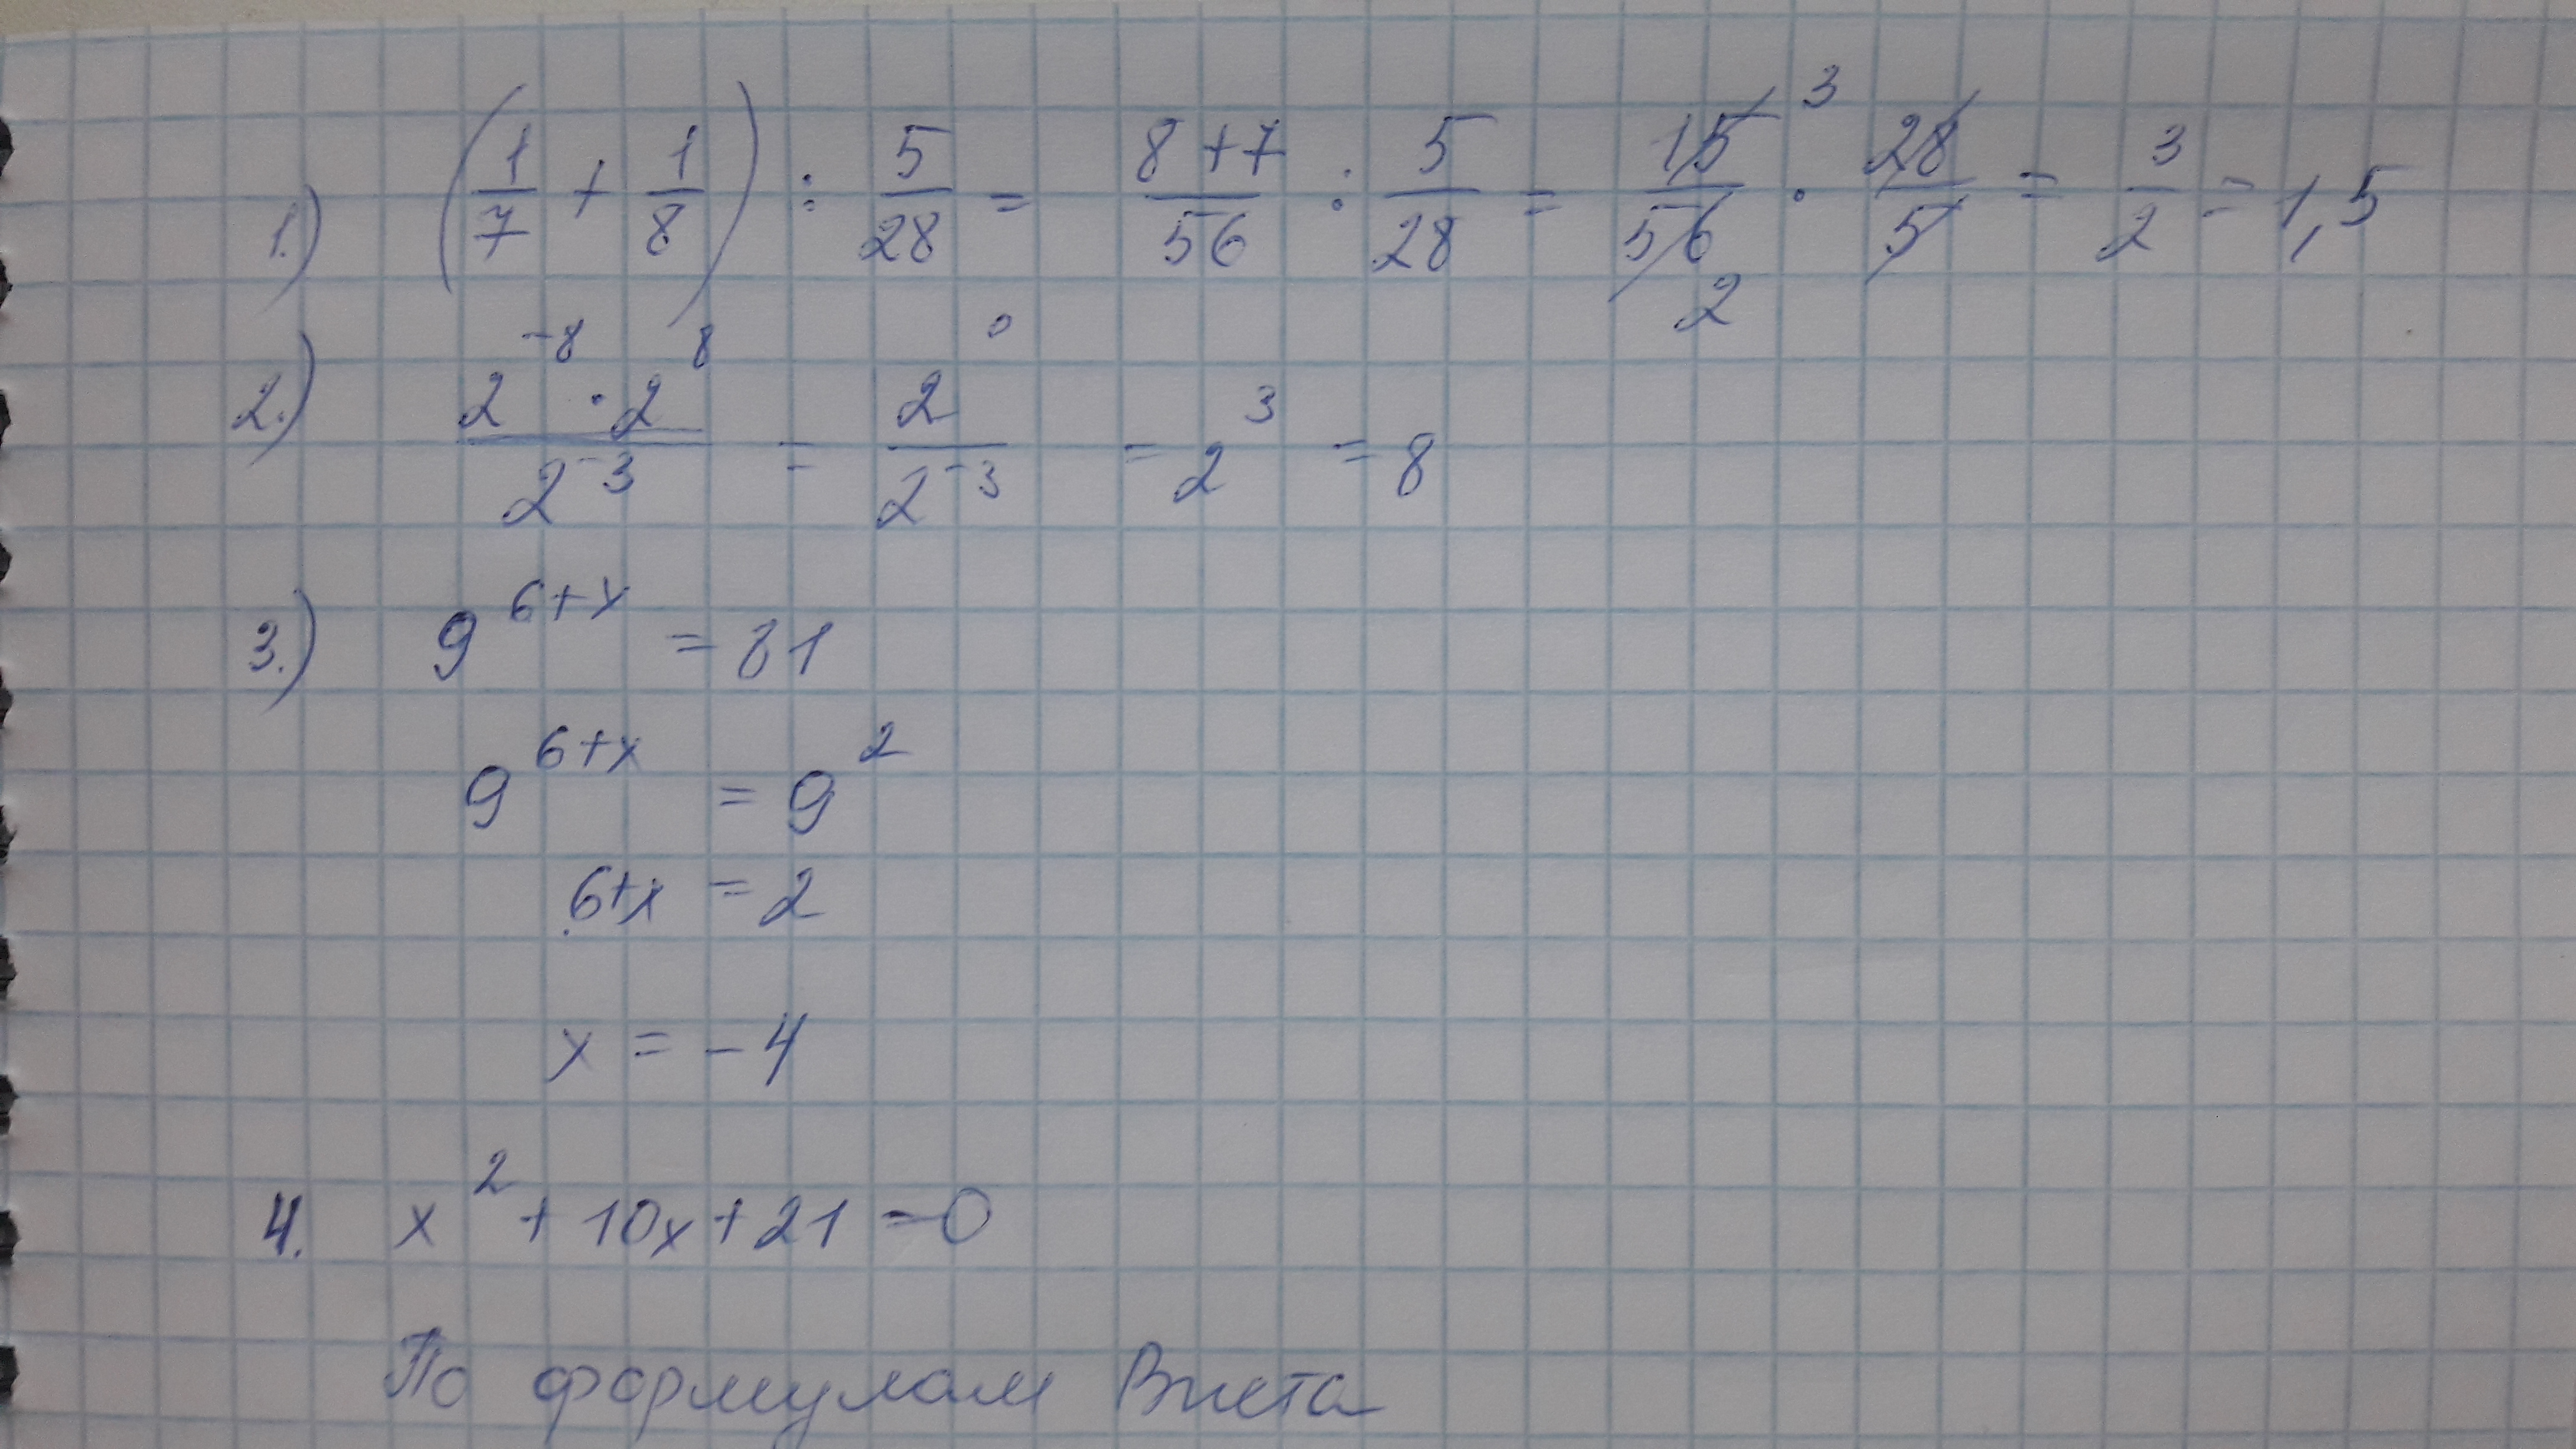 1.) (1/7 + 1/8) : 5/28 = (8+7)/56 : 5/28 = 15/56 3 2 · 28/5 = 3/2 = 1,5
2.) (2^-8 · 2^8)/2^-3 = 2^0/2^-3 = 2^3 = 8
3.) 9^(6+x) = 81
9^(6+x) = 9^2
6+x = 2
x = -4
4. x^2 + 10x + 21 = 0
По формулам Виета